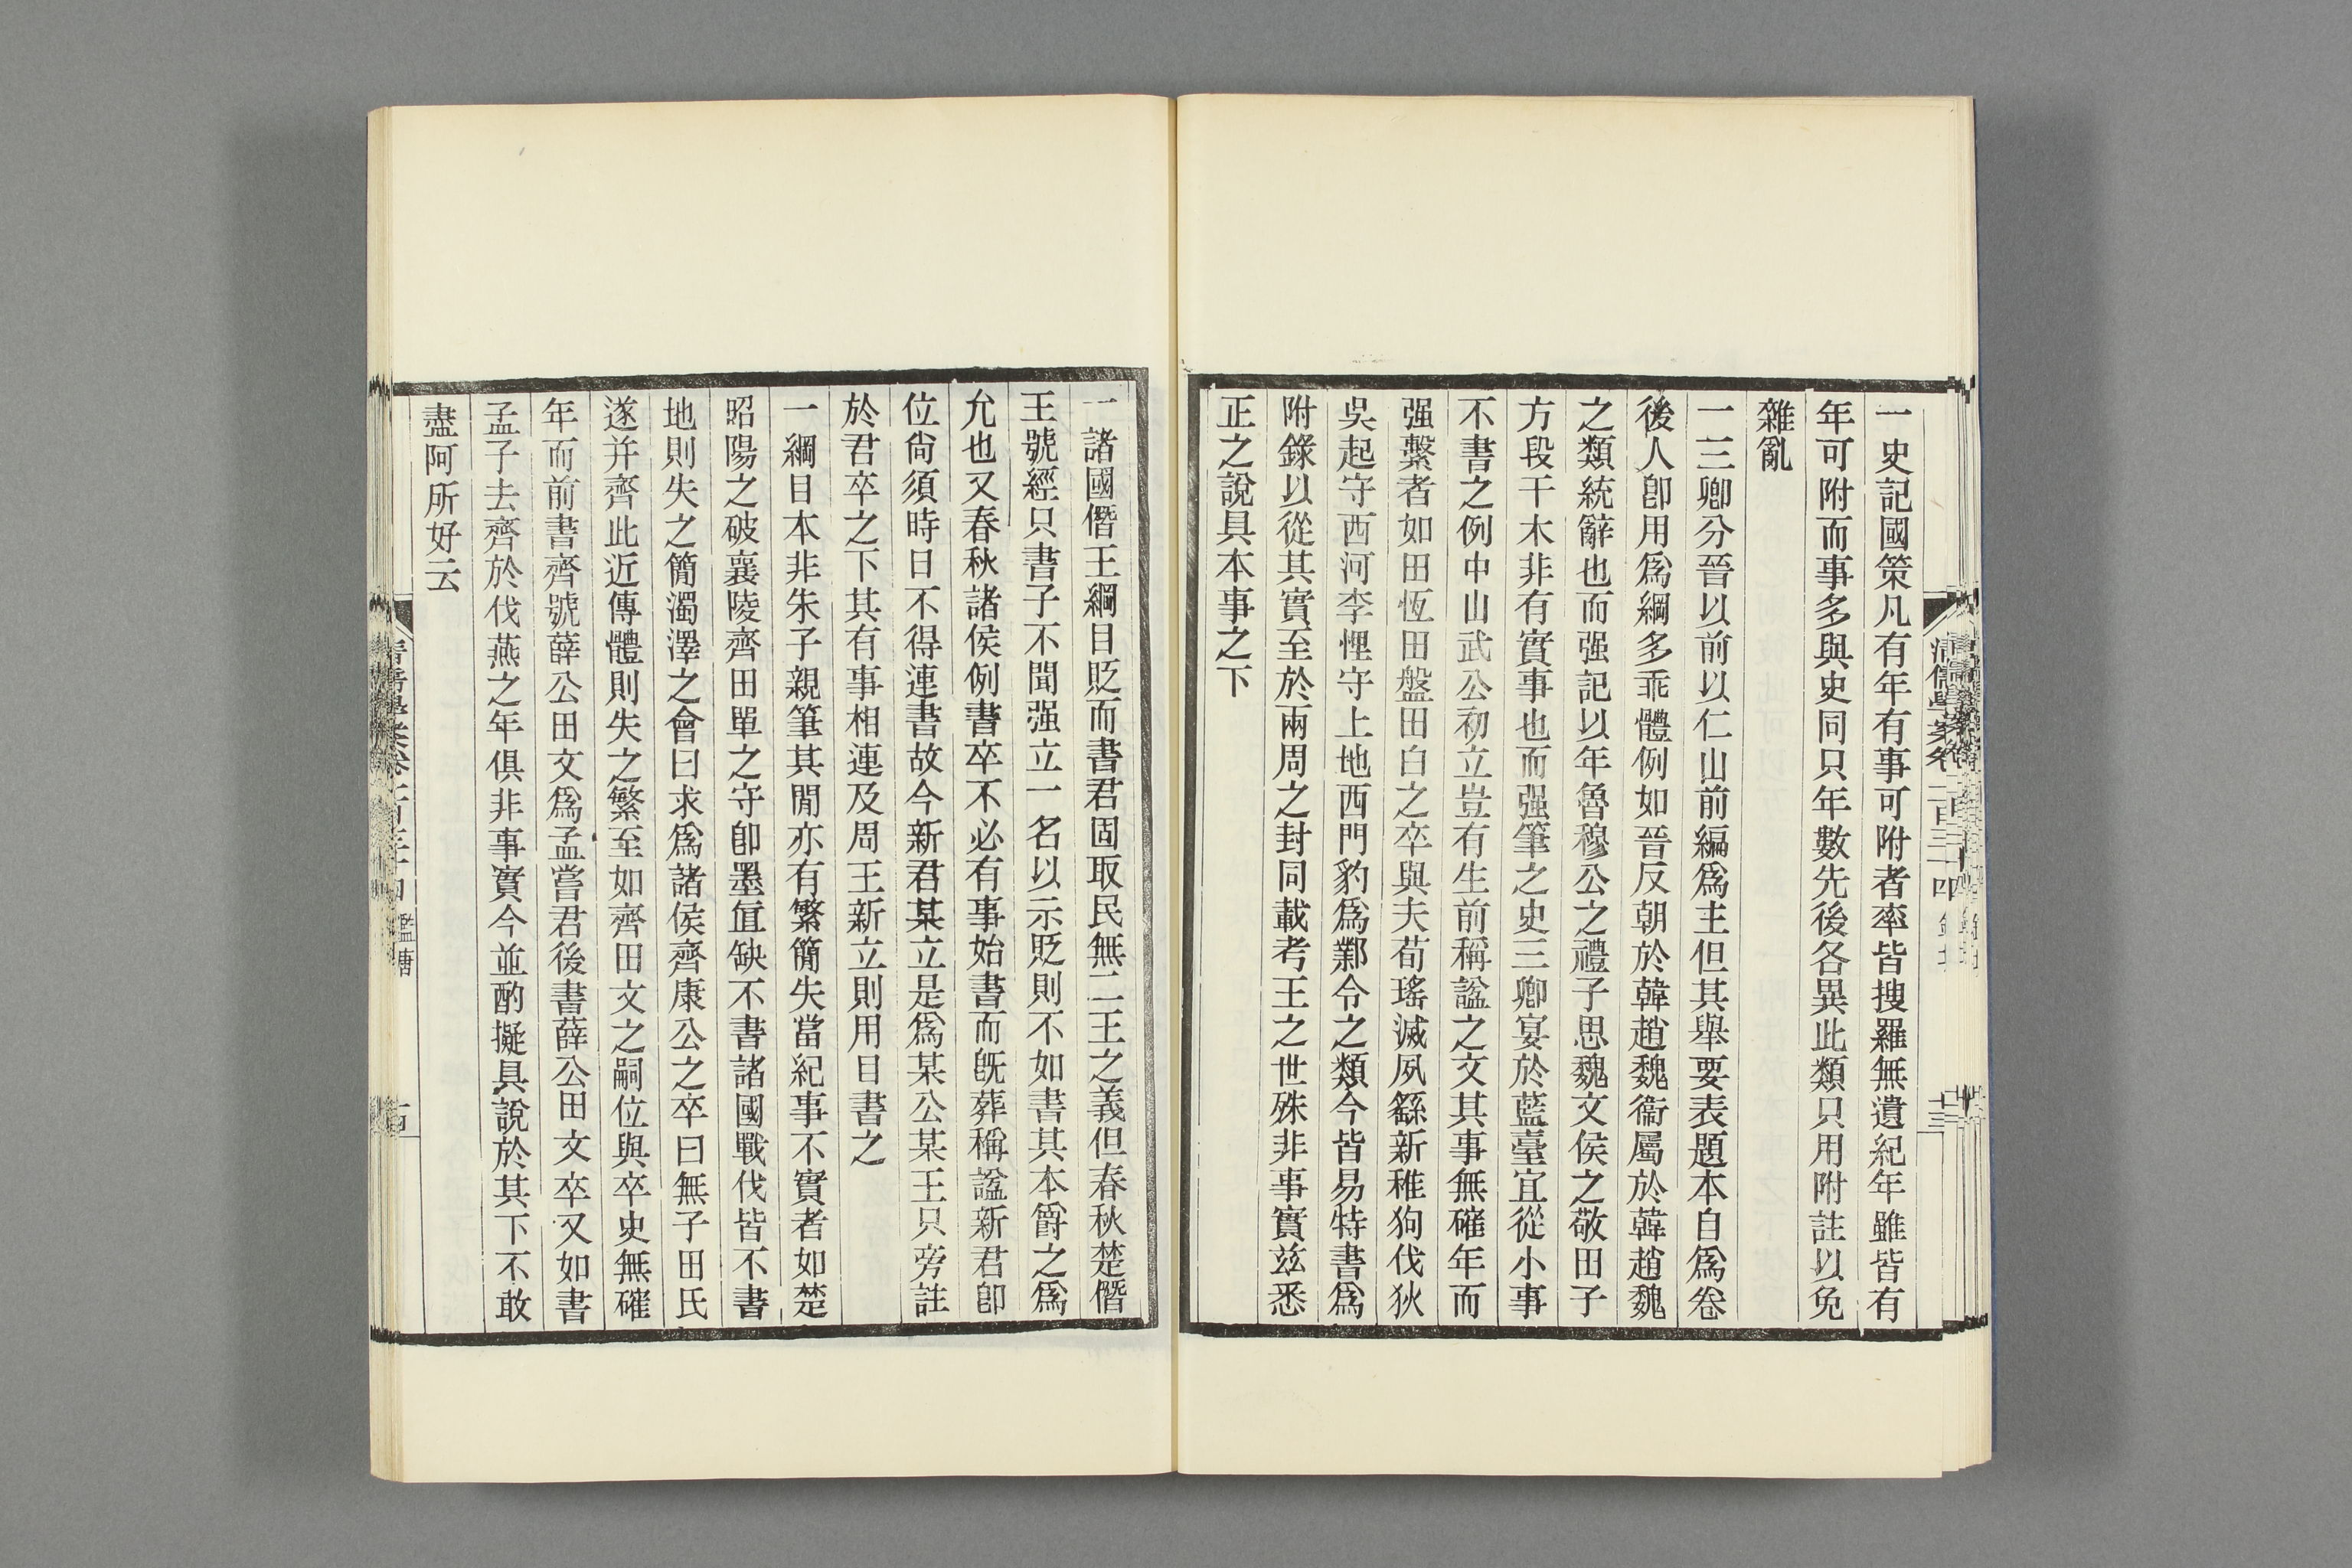 一史記國策凡有年有事可附者率皆搜羅無遺紀年雖皆有
年可附而事多與史同只年數先後各異此類只用附註以免
雜亂
一三卿分晉以前以仁山前編爲主但其舉要表題本自爲卷
後人卽用爲綱多乖體例如晉反朝於韓趙魏衞屬於韓趙魏
之類統辭也而强記以年魯穆公之禮子思魏文侯之敬田子
方段干木非有實事也而强筆之史三卿宴於藍臺宜從小事
不書之例中山武公初立豈有生前稱諡之文其事無確年而
强繫者如田恆田盤田白之卒與夫荀瑤滅夙繇新稚狗伐狄
吳起守西河李悝守上地西門豹爲鄴令之類今皆易特書爲
附錄以從其實至於兩周之封同載考王之世殊非事實兹悉
正之說具本事之下
清儒學案卷二百三十四
十三
一諸國僭王綱目貶而書君固取民無二王之義但春秋楚僭
王號經只書子不聞强立一名以示貶則不如書其本爵之爲
允也又春秋諸侯例書卒不必有事始書而旣葬稱諡新君卽
位尙須時日不得連書故今新君某立是爲某公某王只旁註
於君卒之下其有事相連及周王新立則用目書之
一綱目本非朱子親筆其閒亦有繁簡失當紀事不實者如楚
昭陽之破襄陵齊田單之守卽墨亙缺不書諸國戰伐皆不書
地則失之簡濁澤之會曰求爲諸侯齊康公之卒曰無子田氏
遂并齊此近傳體則失之繁至如齊田文之嗣位與卒史無確
年而前書齊號薛公田文爲孟嘗君後書薛公田文卒又如書
孟子去齊於伐燕之年俱非事實今並酌擬具說於其下不敢
盡阿所好云